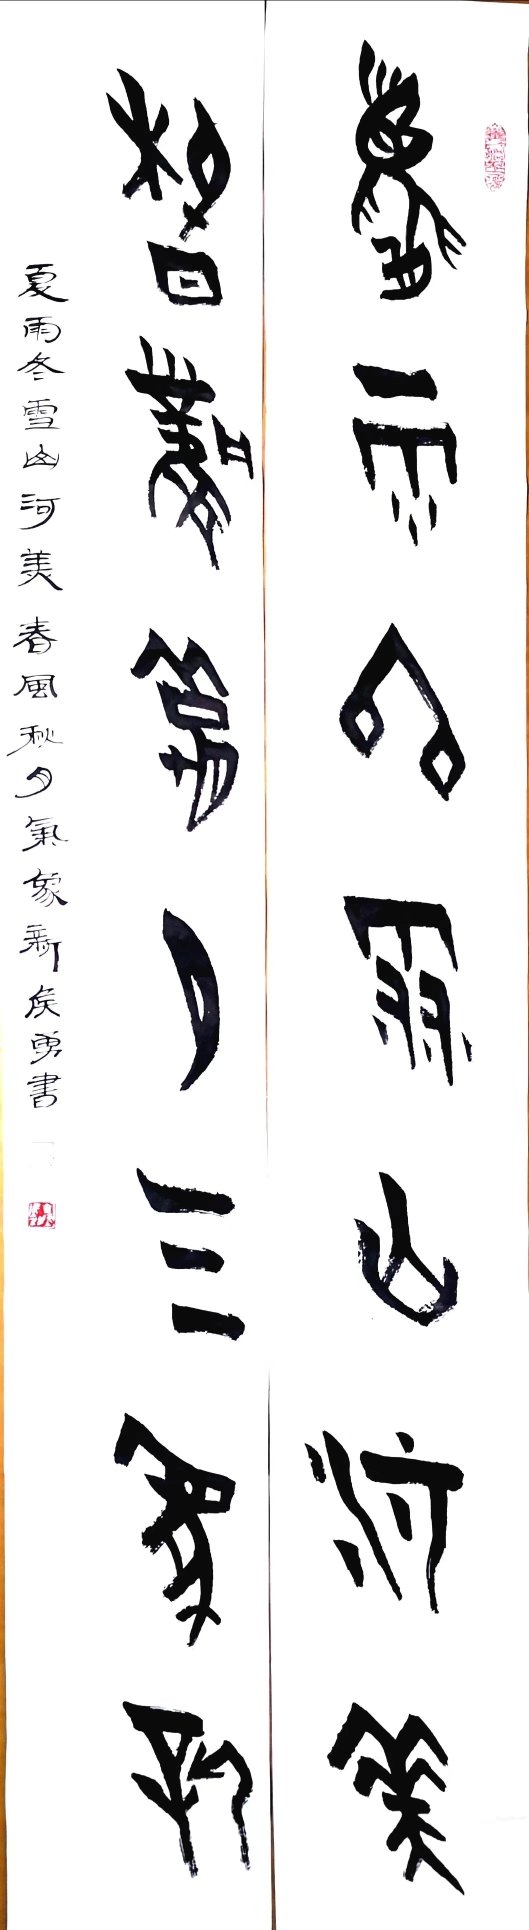 夏雨冬雪山河美
春風秋夕氣象新
夏雨冬雪山河美春風秋夕氣象新侯勇書